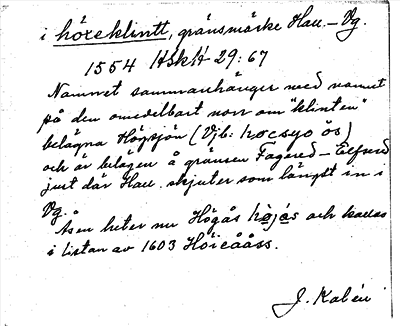 i höreklintt, gränsmärke Hall. – Vg.
1554 HSkH 29:67
Namnet sammanhänger med namnet
på den omedelbart norr om "klinten"
belägna Högsjön (Vjb:
och är belägen å gränsen Fagered – Elfsered
just där Hall. skjuter som längst in i
Vg.
Åsen heter nu Högås och kallas
i listan av 1603 Höieååss.
J. Kalén